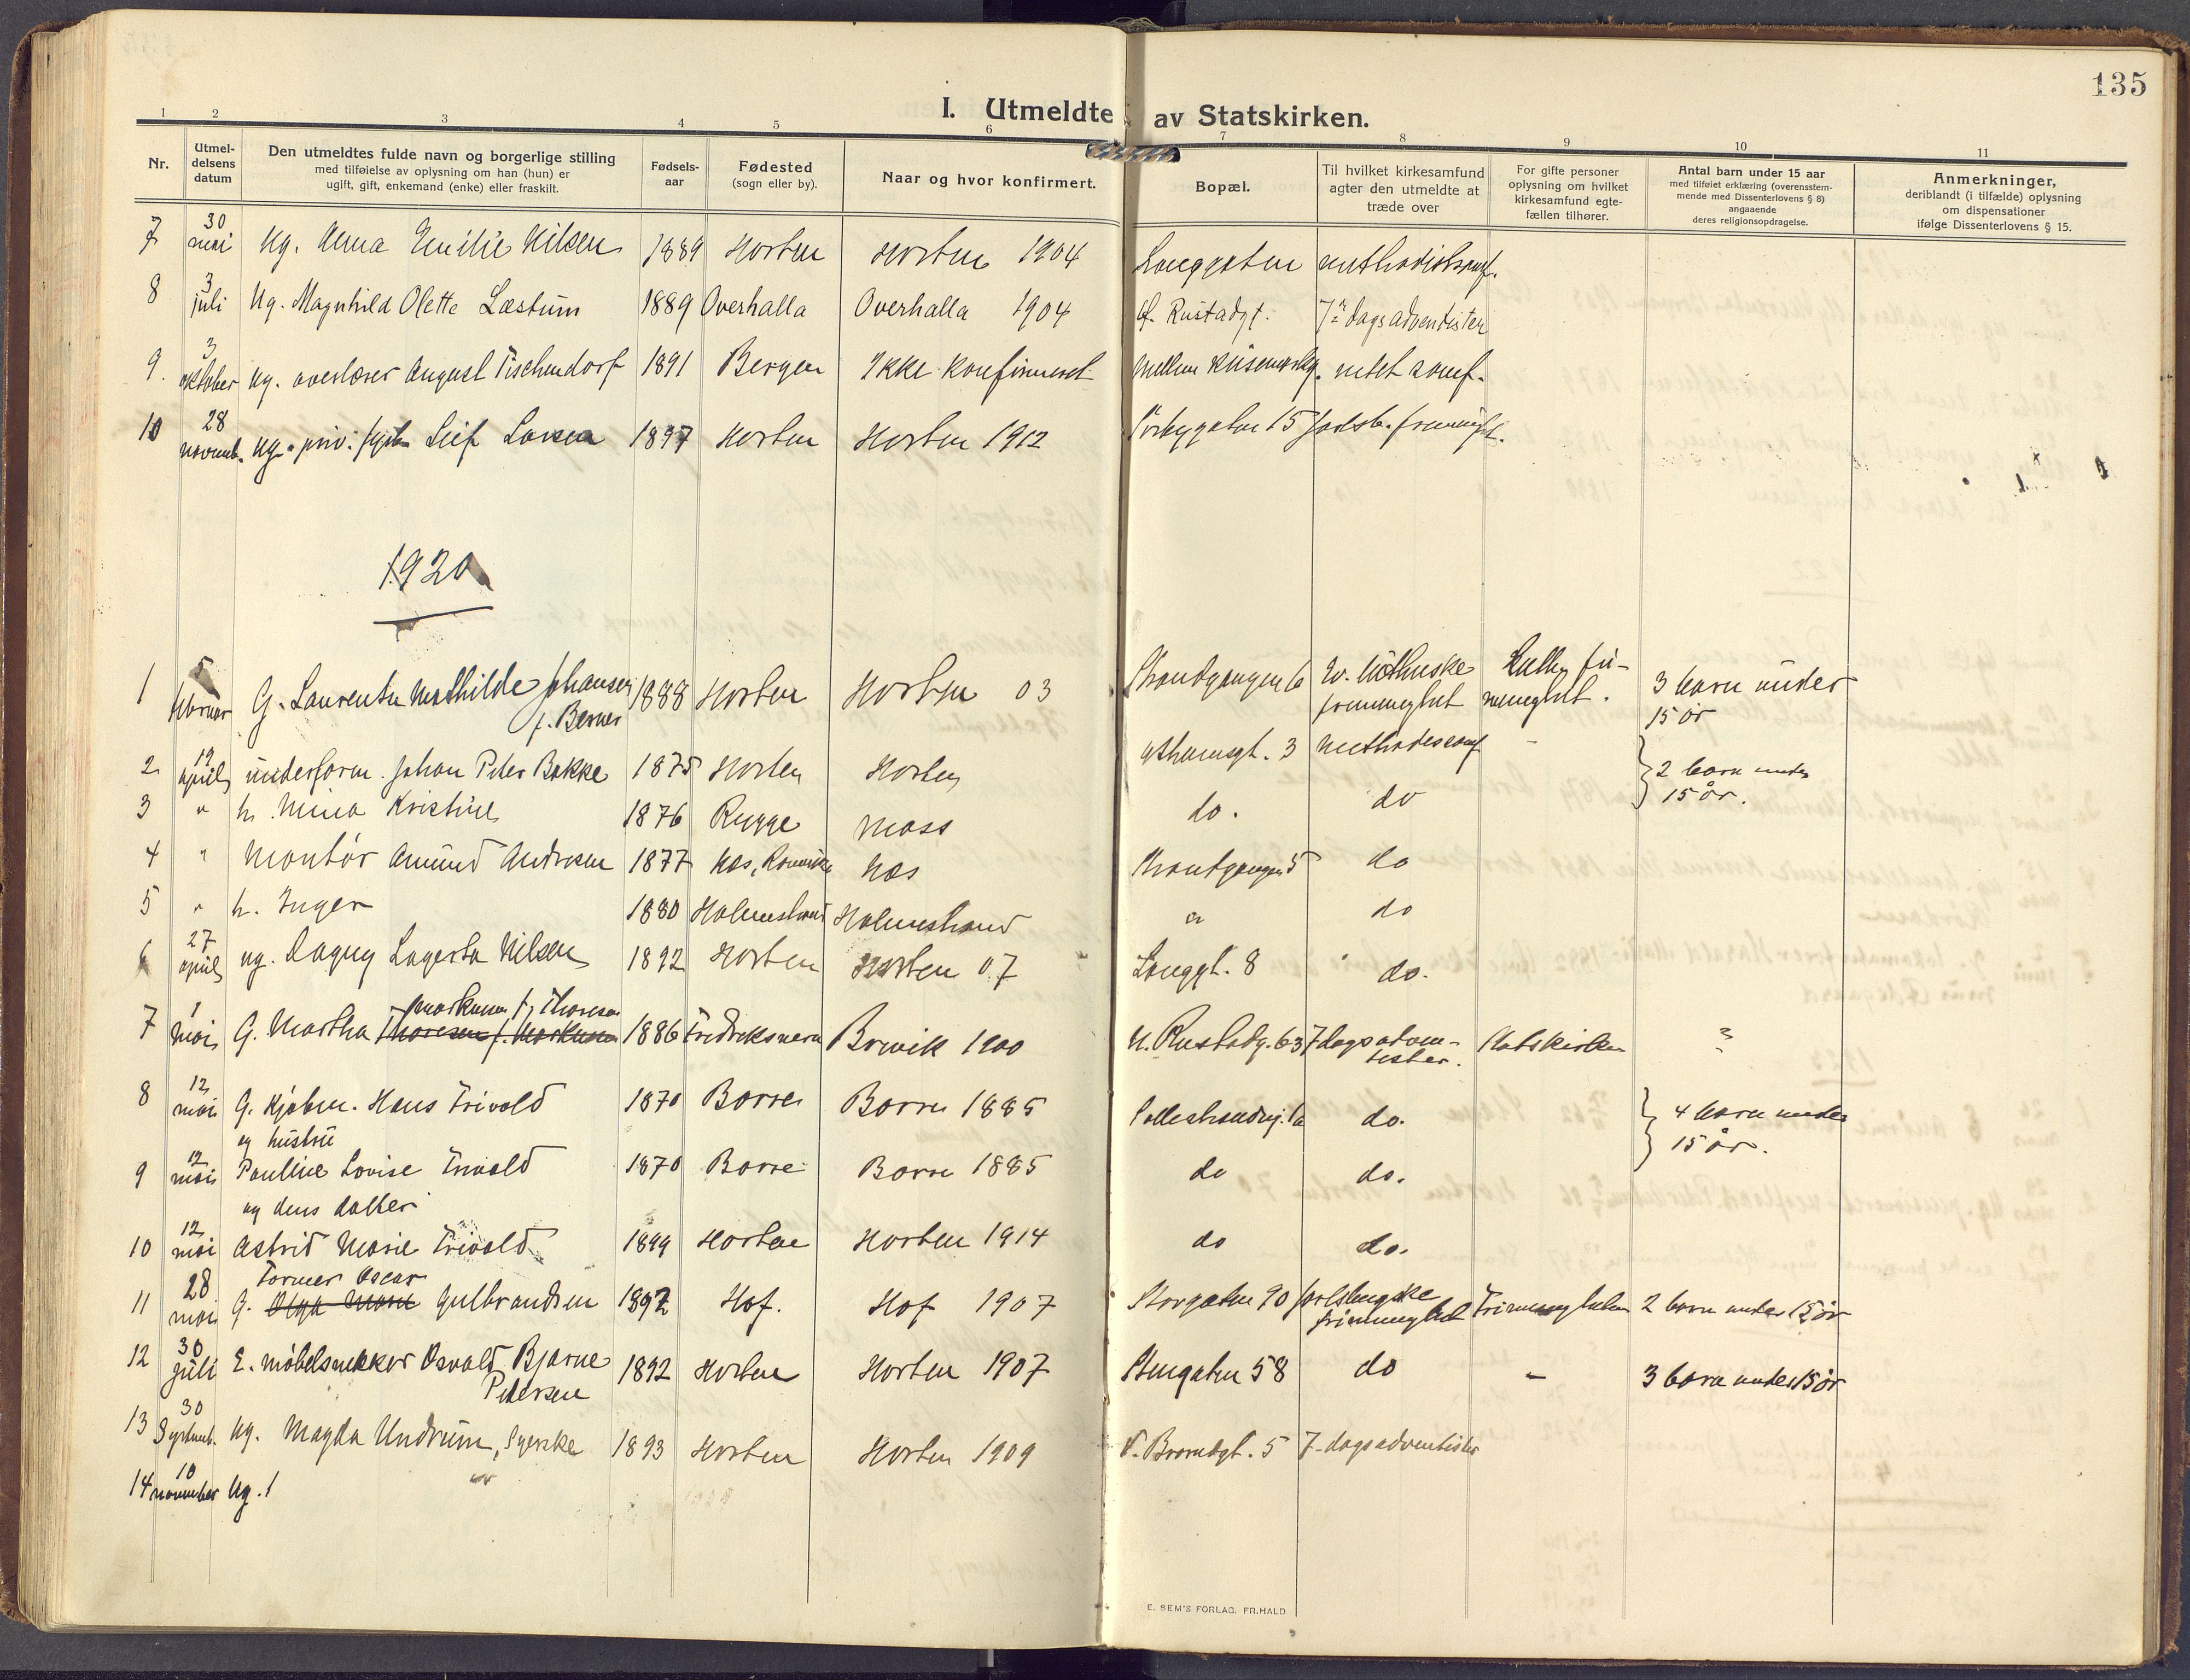 135
I. Utmeldte av Statskirken.
1 2 3 4 5 6 7 8 9 10 11
Nr.
Utmel-
delsens
datum
Den utmeldtes fulde navn og borgerlige stilling
med tilføielse av oplysning om han (hun) er
ugift, gift, enkemand (enke) eller fraskilt.
Fødsels-
aar
Fødested
(sogn eller by).
Naar og hvor konfirmert.
Bopæl.
Til hvilket kirkesamfund
agter den utmeldte at
træde over
For gifte personer
oplysning om hvilket
kirkesamfund egte-
fællen tilhører.
Antal barn under 15 aar
med tilføiet erklæring (overensstem-
mende med Dissenterlovens § 8)
angaaende
deres religionsopdragelse.
Anmerkninger,
deriblandt (i tilfælde) oplysning
om dispensationer
ifølge Dissenterlovens § 15.
7 30 mai Ug. Anna Emilie Nilsen 1889 Horten Horten 1904 Langgaten methodistsamf.
8 3 juli Ug. Magnhild Olette Læstum 1889 Overhalla Overhalla 1904 Rustadgt. 7de dags adventister
9. 3 oktober ug. overlærer August Tischendorf 1891 Bergen Ikke konfirmert Mellem intet samf.
10 28 novemb. ug. priv. Leif Larsen 1897 Horten Horten 1912 15
1920
1 5 februar G. Laurentze Mathilde Johansen 1888 Horten Horten 03 Strandgangen 6 frimenighet Luth. fri-
f. Berner menighet. 3 barn under
15 år
2 19 april underform. Johan Peter Bakke 1875 Horten Horten 3 methodistsamf -
3 " h. Mina Kristine 1876 Rygge Moss do. do 2 barn under
15 år.
4 " Montør Amund Andresen 1877 Nes, Romerike Nes Strandgangen 5 do
5 " h. Inger 1880 Holmestrand Holmestrand " do
6 27 april ug. Dagny Lagerta Nilsen 1892 Horten Horten 07 Langgt. 8 do.
7 1 mai G. Martha Thoresen f. Markusen Markusen f. Thoresen 1886 Fredriksvern Brevik 1900 N. Rustadg. 63 7 dags adven-
tister. Statskirken "
8 12 mai G. kjøbm. Hans Trivold 1870 Borre Borre 1885 do. 4 barn under
og hustru 15 år.
9 12 mai Pauline Lovise Trivold 1870 Borre Borre 1885 do do.
og deres datter
10 12 mai Astrid Marie Trivold 1899 Horten Horten 1914 do do.
11 28 mai G. Olga Marie Tormer Oscar Gulbrandsen 1892 Hof. Hof 1907 Storgaten 90 Jarlsbergske
frimenighet Frimenigheten 2 barn under 15 år
12 30 juli E. møbelsnekker Osvald Bjarne 1892 Horten Horten 1907 58 do - 3 barn under 15 år
Petersen
13 30 Septemb. Ug. Magda Undrum, syerske 1893 Horten Horten 1909 5 7-dagsadventister
14 10 november Ug.
E. SEM'S FORLAG, FR.HALD